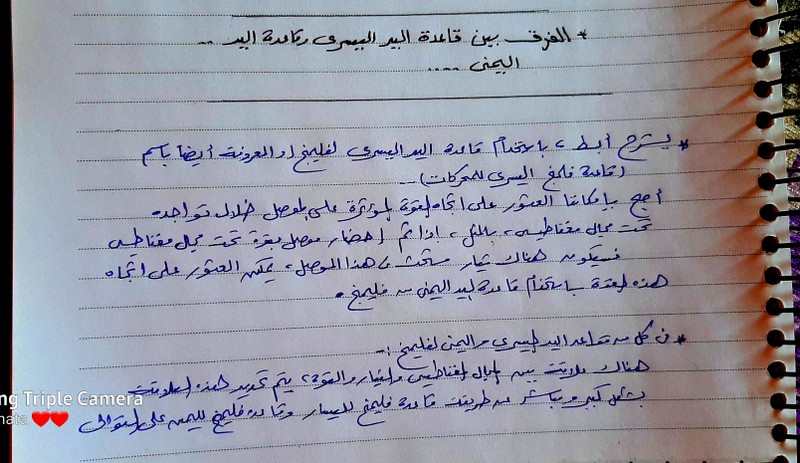 * الفرق بين قاعدة اليد اليسرى وقاعدة اليد ..
اليمنى ....
* بشرح أبسط ، باستخدام قاعدة اليد اليسرى لفليمنج او المعروفة أيضاً باسم
(قاعدة فلمنج اليسرى للمحركات) ...
أصبح بإمكاننا العثور على اتجاه القوة المؤثرة على الموصل خلال تواجده
تحت مجال مغناطيسي ، بالمثل ، اذا تم إحضار موصل بقوة تحت مجال مغناطيسي
فسيكون هناك تيار مستحث في هذا الموصل ، يمكن العثور على اتجاه
هذه القوة باستخدام قاعدة اليد اليمنى من فليمنج .
* في كل من قواعد اليد اليسرى واليمنى لفليمنج :-
هناك علاقة بين المجال المغناطيسي والتيار والقوة ، يتم تحديد هذه العلاقة
بشكل كبير ومباشر عن طريق قاعدة فليمنج لليسار وقاعدة فليمنج لليمين على التوالي
ng Triple Camera
nata ❤️❤️